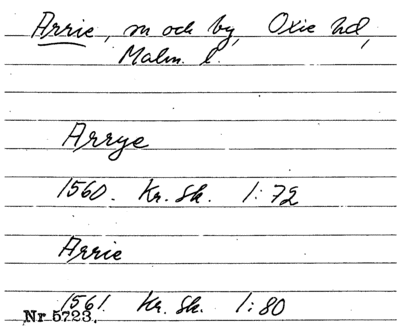 Arrie, sn och by, Oxie hd,
Malm. l.
Arrye
1560. Kr. Sk. 1:72
Arrie
1561. Kr. Sk. 1:80
Nr 5723.